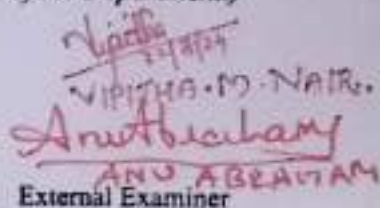 Vipitha
VIPITHA.M.NAIR.
Anu Abraham
ANU ABRAHAM
External Examiner